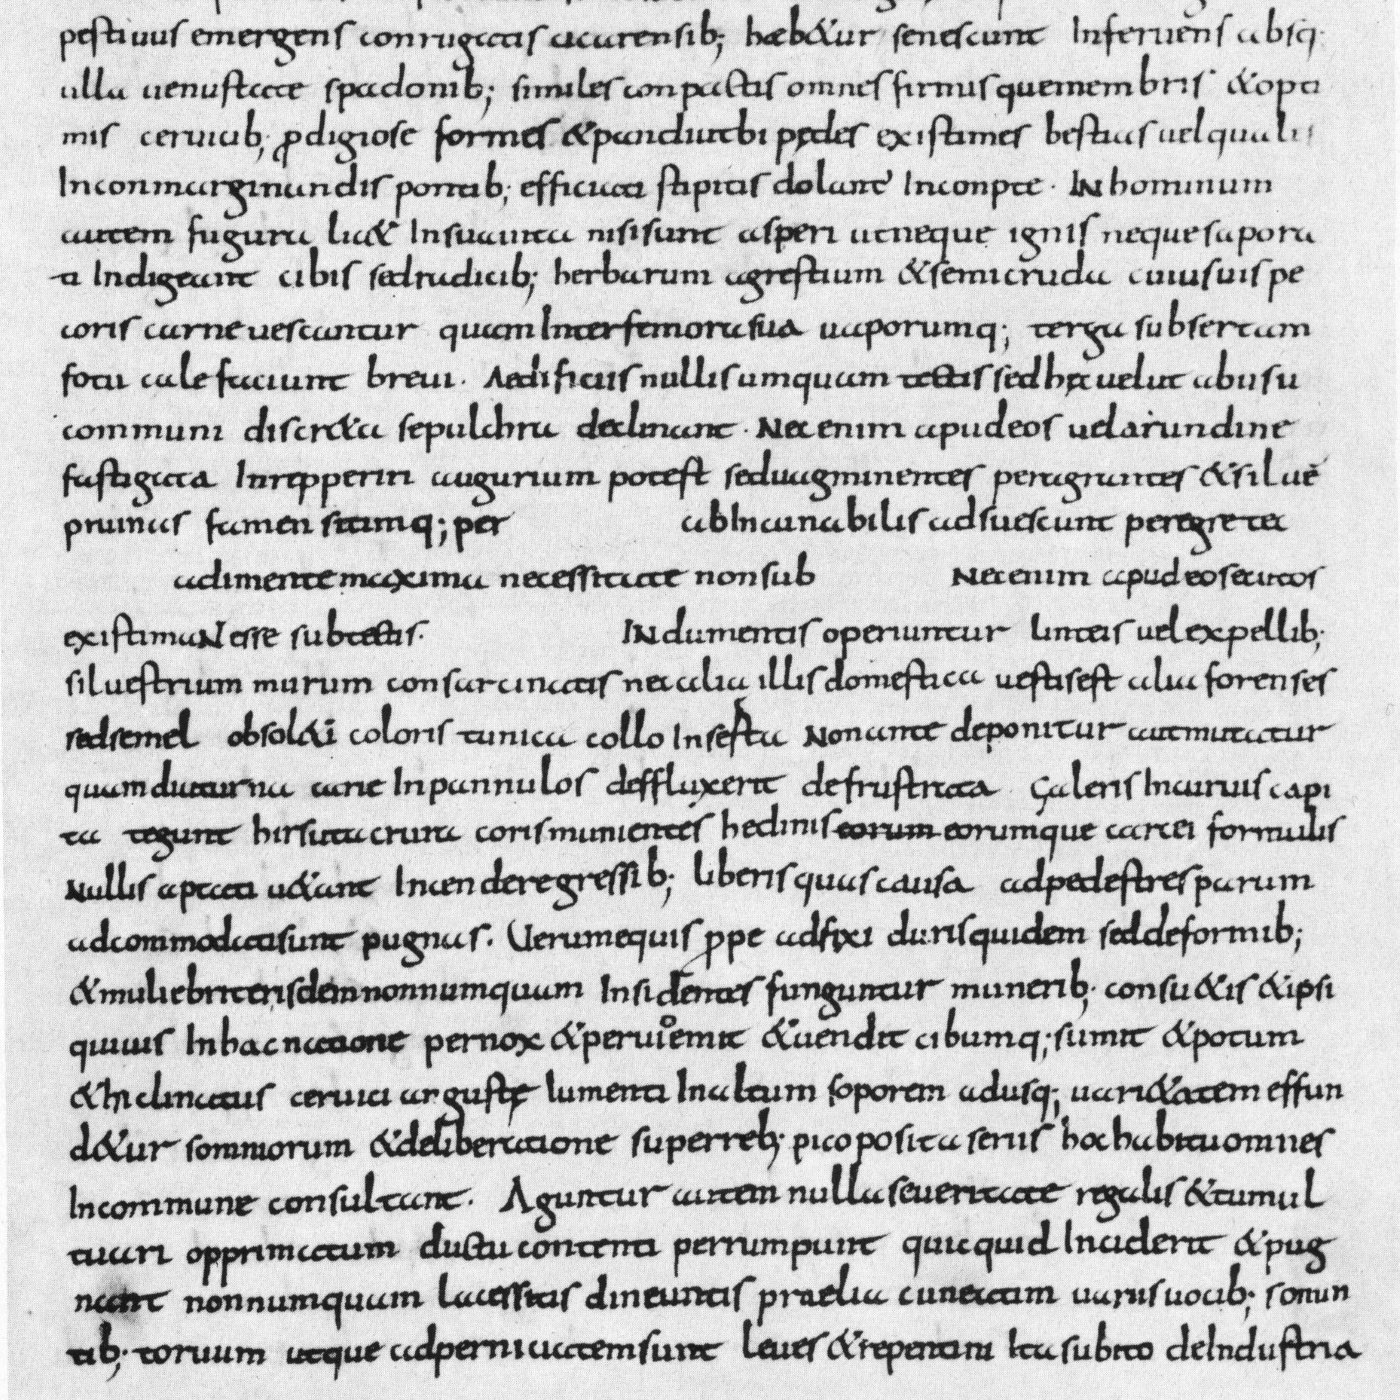 pestiuus emergens conrugatis cicatrensib; hæb&ur senescunt Inferuens absq·
ulla uenustate spadonib; similes conpactis omnes firmisque membris &opti
mis ceruicib; pdigiose formes &pandutbi pędes existimes bestias uel qualis
Inconmarginandis pontib; efficiati stipitis dolant Inconpte · IN hominum
autem figura lia& Insuauita nisi sunt asperi ut neque ignis neque sapora
ti Indigeant cibis sed radicib; herbarum agrestium &semicruda cuiusuis pe
coris carne uescantur quam Inter femora sua uaporumq; terga subsertam
fotu cale faciunt breui · Aedificiis nullis umquam tectis sed hęc uelut abusu
communi discr&a sepulchra declinant · Nec enim apud eos uel arundine
fastigata Inrepperiri augurium potest sed uagminentes peragrantes &siluẹ
pruinas famen sitimq; per ab Incunabilis adsuescunt peregre tec
adimente maxima necessitate non sub Nec enim apud eos securos
existimaN esse sub tectis · INdumentis operiuntur linteis uel expellib;
siluestrium murum consarcinatis nec alia illis domestica uestis est alia forenses
sed semel obsol&i coloris tunica collo Inserta Non ante deponitur aut mutatur
quam diuturna carie In pannulos deffluxerit defrustrata Galeris Incuruis capi
ta tegunt hirsuta crura coris munientes hedinis eorum eorumque carcei formulis
Nullis aptati u&ant Incendere gressib; liberis quas causa ad pedestres parum
adcommodati sunt pugnas · Uerum equis ppe adfixi duris quidem sed deformib;
&muliebriter isdem nonnumquam Insidentes funguntur munerib; consu&is &ipsi
quiuis In hac natione pernox &peruiᵒemit &uendit cibumq; sumit &potum
&Inclinatus ceruici angustę Iumenti Inaltum soporem adusq; uari&atem effun
d&ur somniorum &deliberatione super reb; pico posita seriis hoc habitu omnes
In commune consultant · Aguntur autem nulla seueritate regalis &tumul
tuari opprimatum ductu contenti perrumpunt quicquid Inciderit &pug
nant nonnumquam lacessitis dineuntis praelia cuneatim uariis uocib; sonun
tib; toruum utque ad pernicitatem sunt leues &repentini Ita subito de Industria